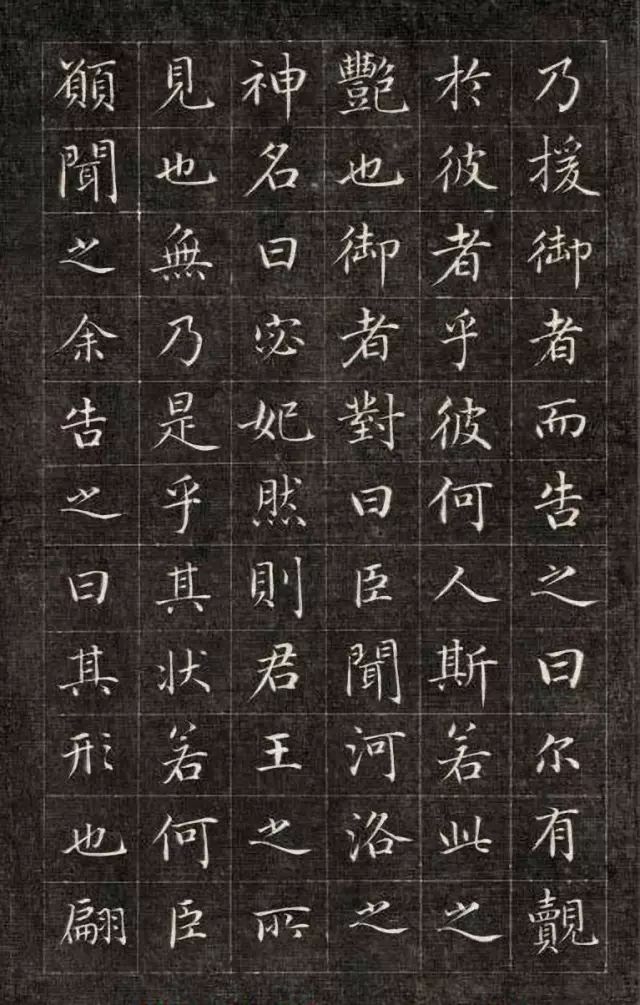 乃援御者而告之曰尔有覿
於彼者乎彼何人斯若此之
豔也御者對曰臣聞河洛之
神名曰宓妃然則君王之所
見也無乃是乎其状若何臣
願聞之余告之曰其形也翩